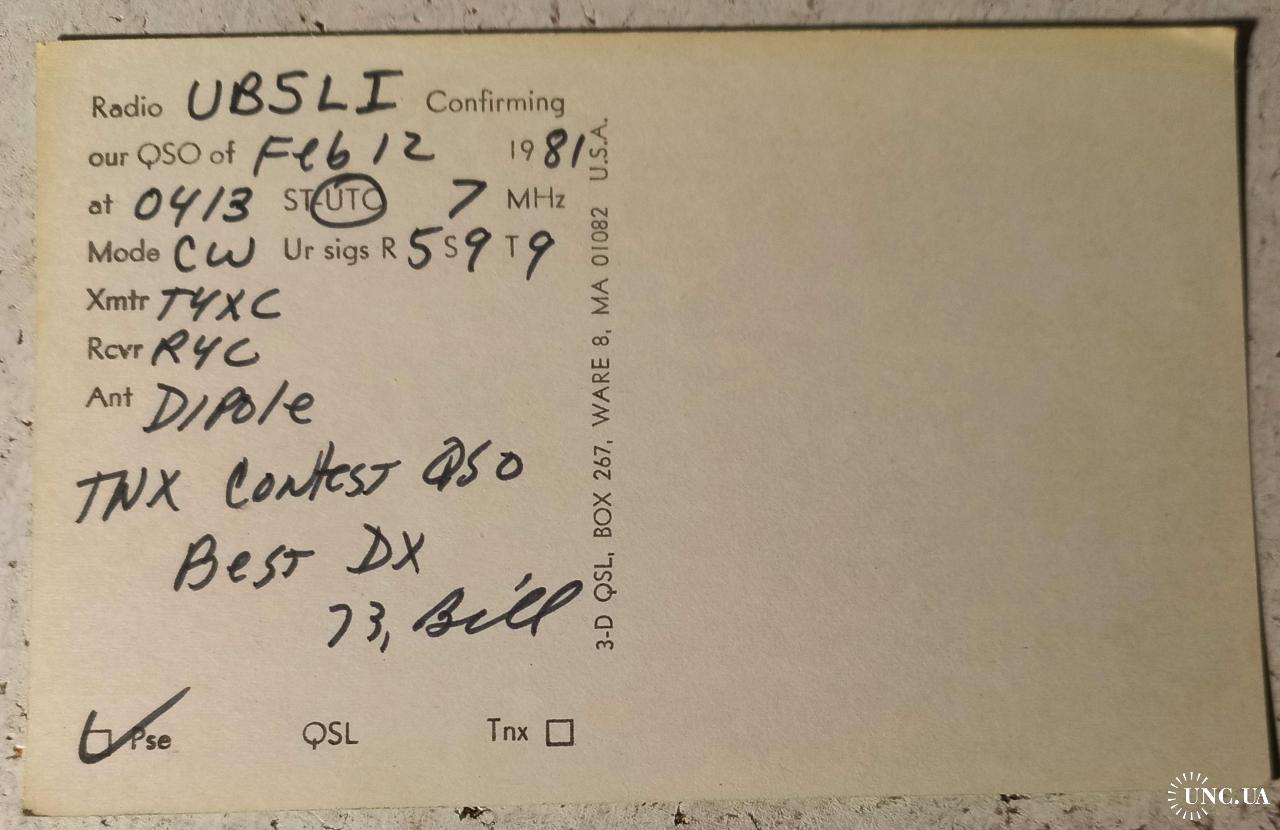 Radio UB5LI Confirming
our QSO of Feb 12 1981
at 0413 ST-UTC 7 MHz
Mode CW Ur sigs R 5 S 9 T 9
Xmtr T4XC
Rcvr R4C
Ant Dipole
TNX Contest QSO
Best DX
73, Bill
Pse QSL Tnx
3-D QSL, BOX 267, WARE 8, MA 01082 U.S.A.
UNC.UA